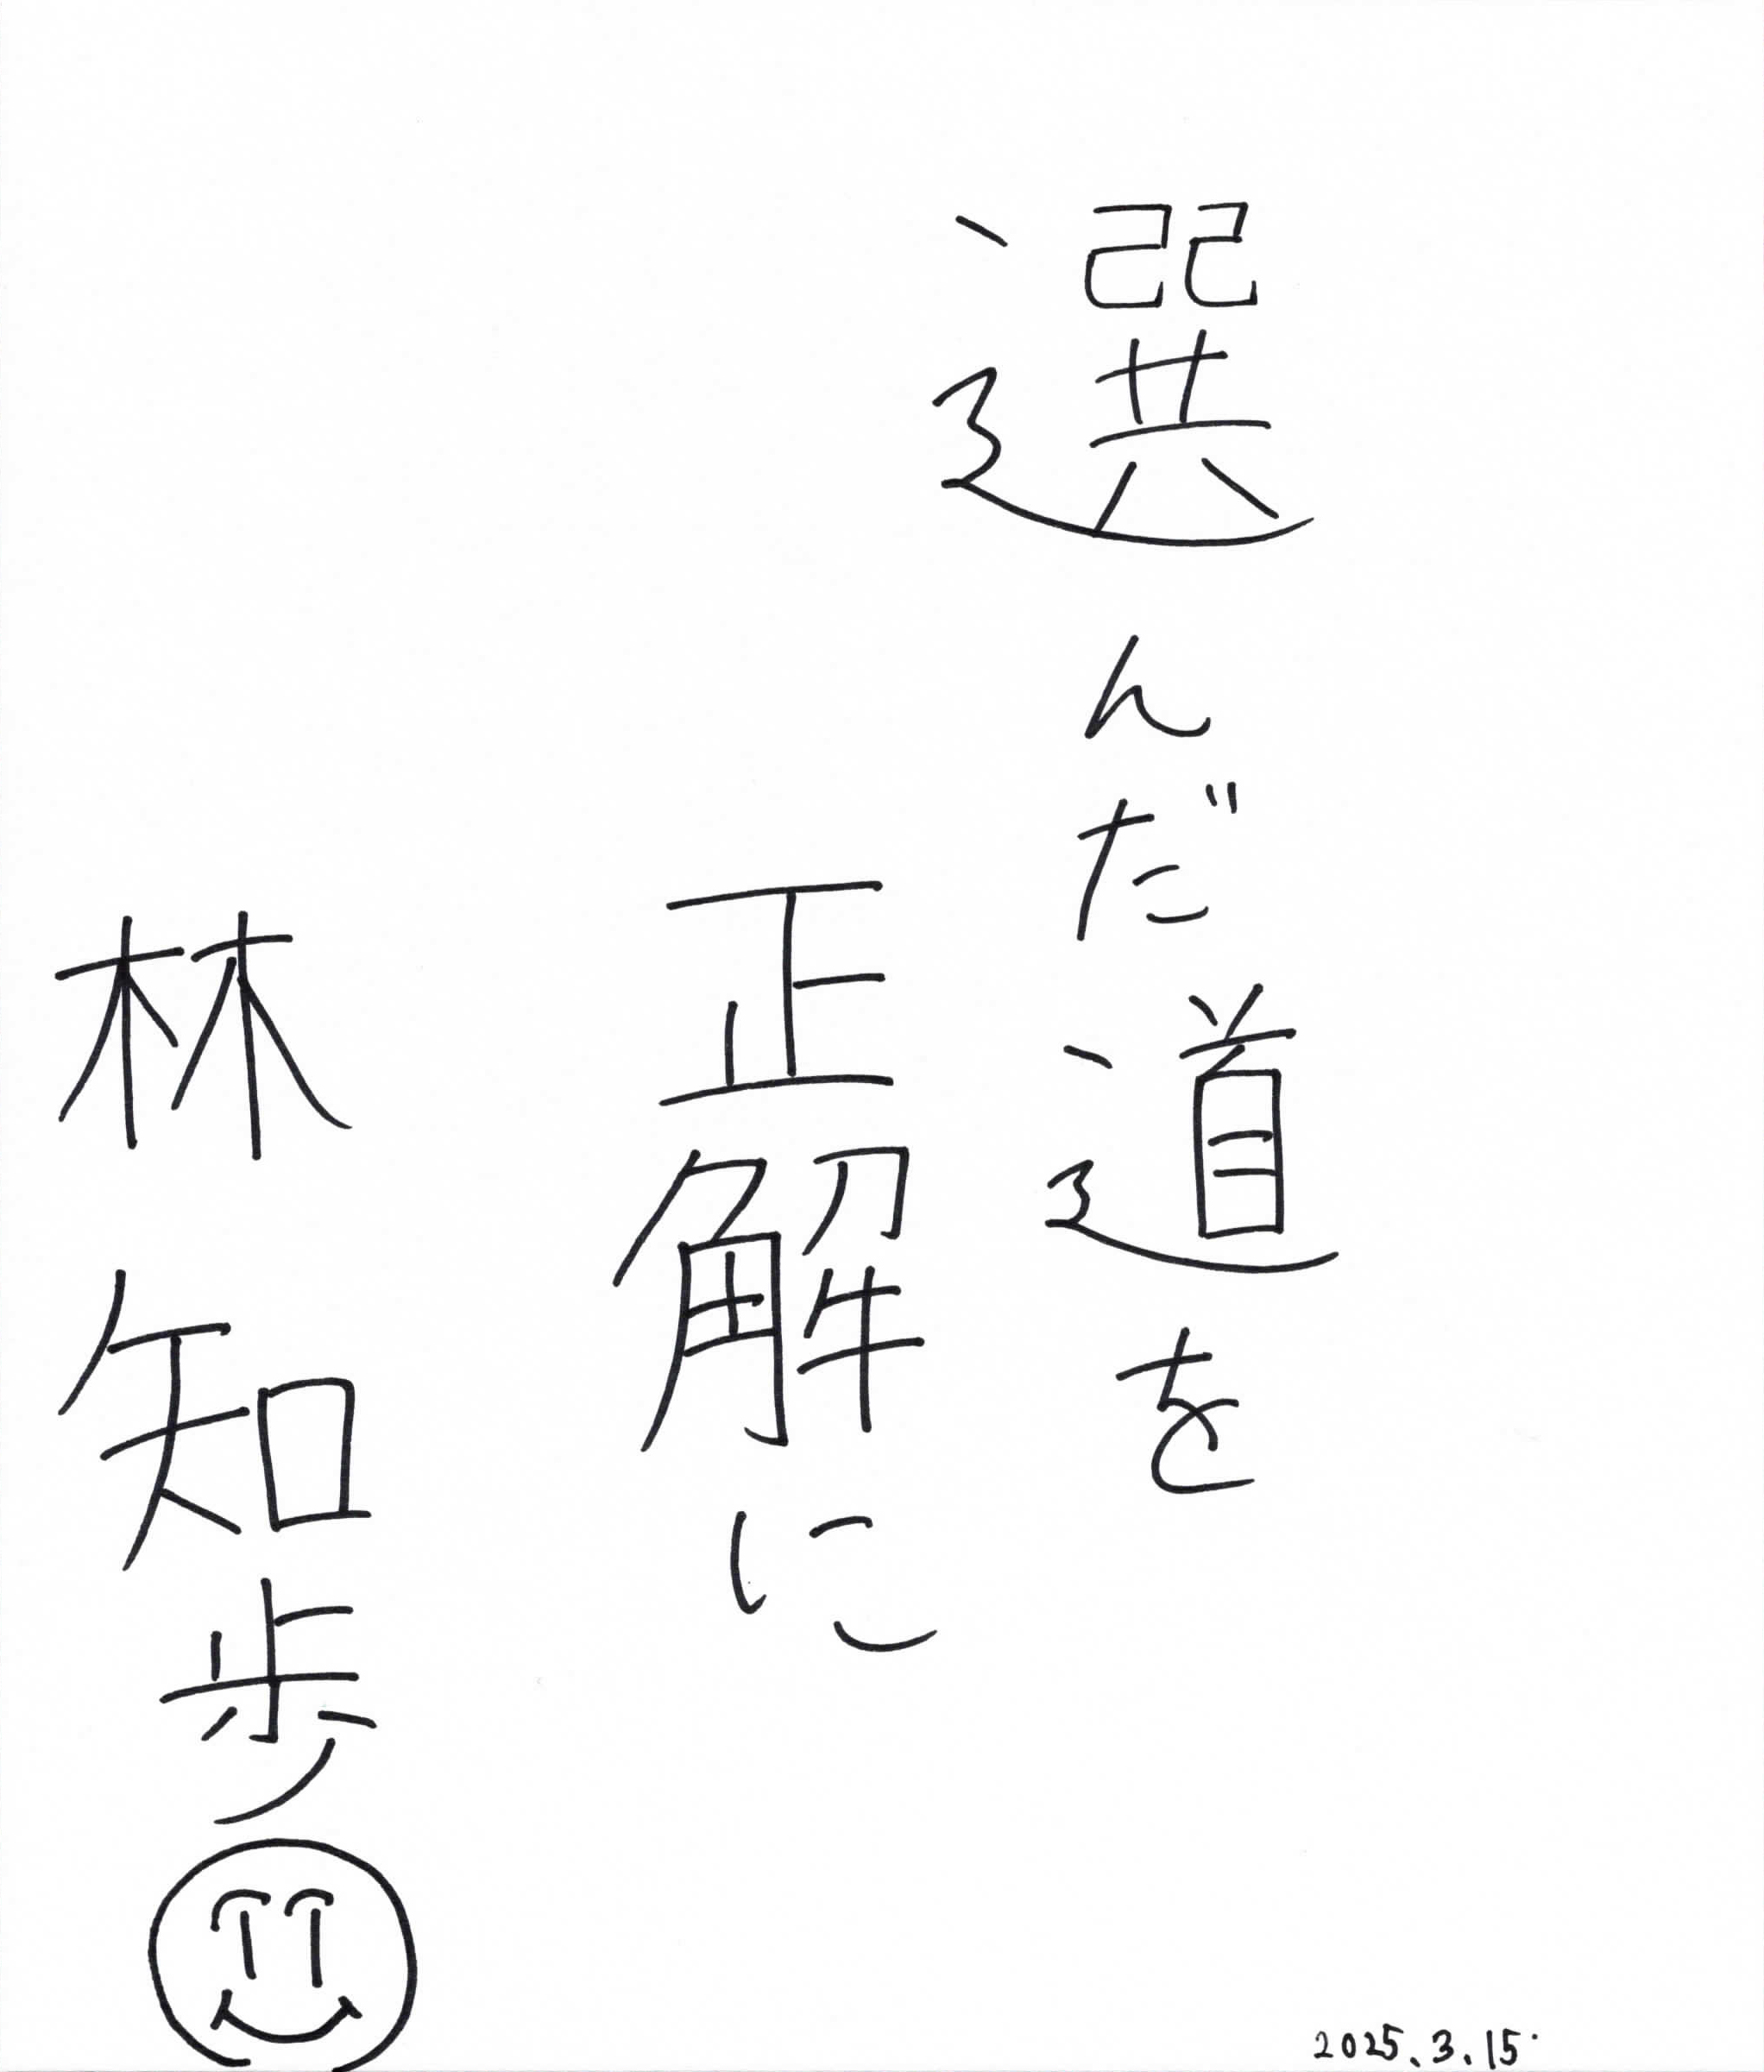 選んだ道を
正解に
林 知歩
2025.3.15.